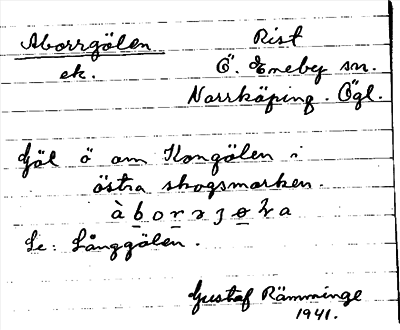 Aborrgölen Rist
ek. Ö. Eneby sn.
Norrköping. Ögl.
Göl ö om Kongölen i
östra skogsmarken.
Se: Långgölen.
Gustaf Rämminge
1941.